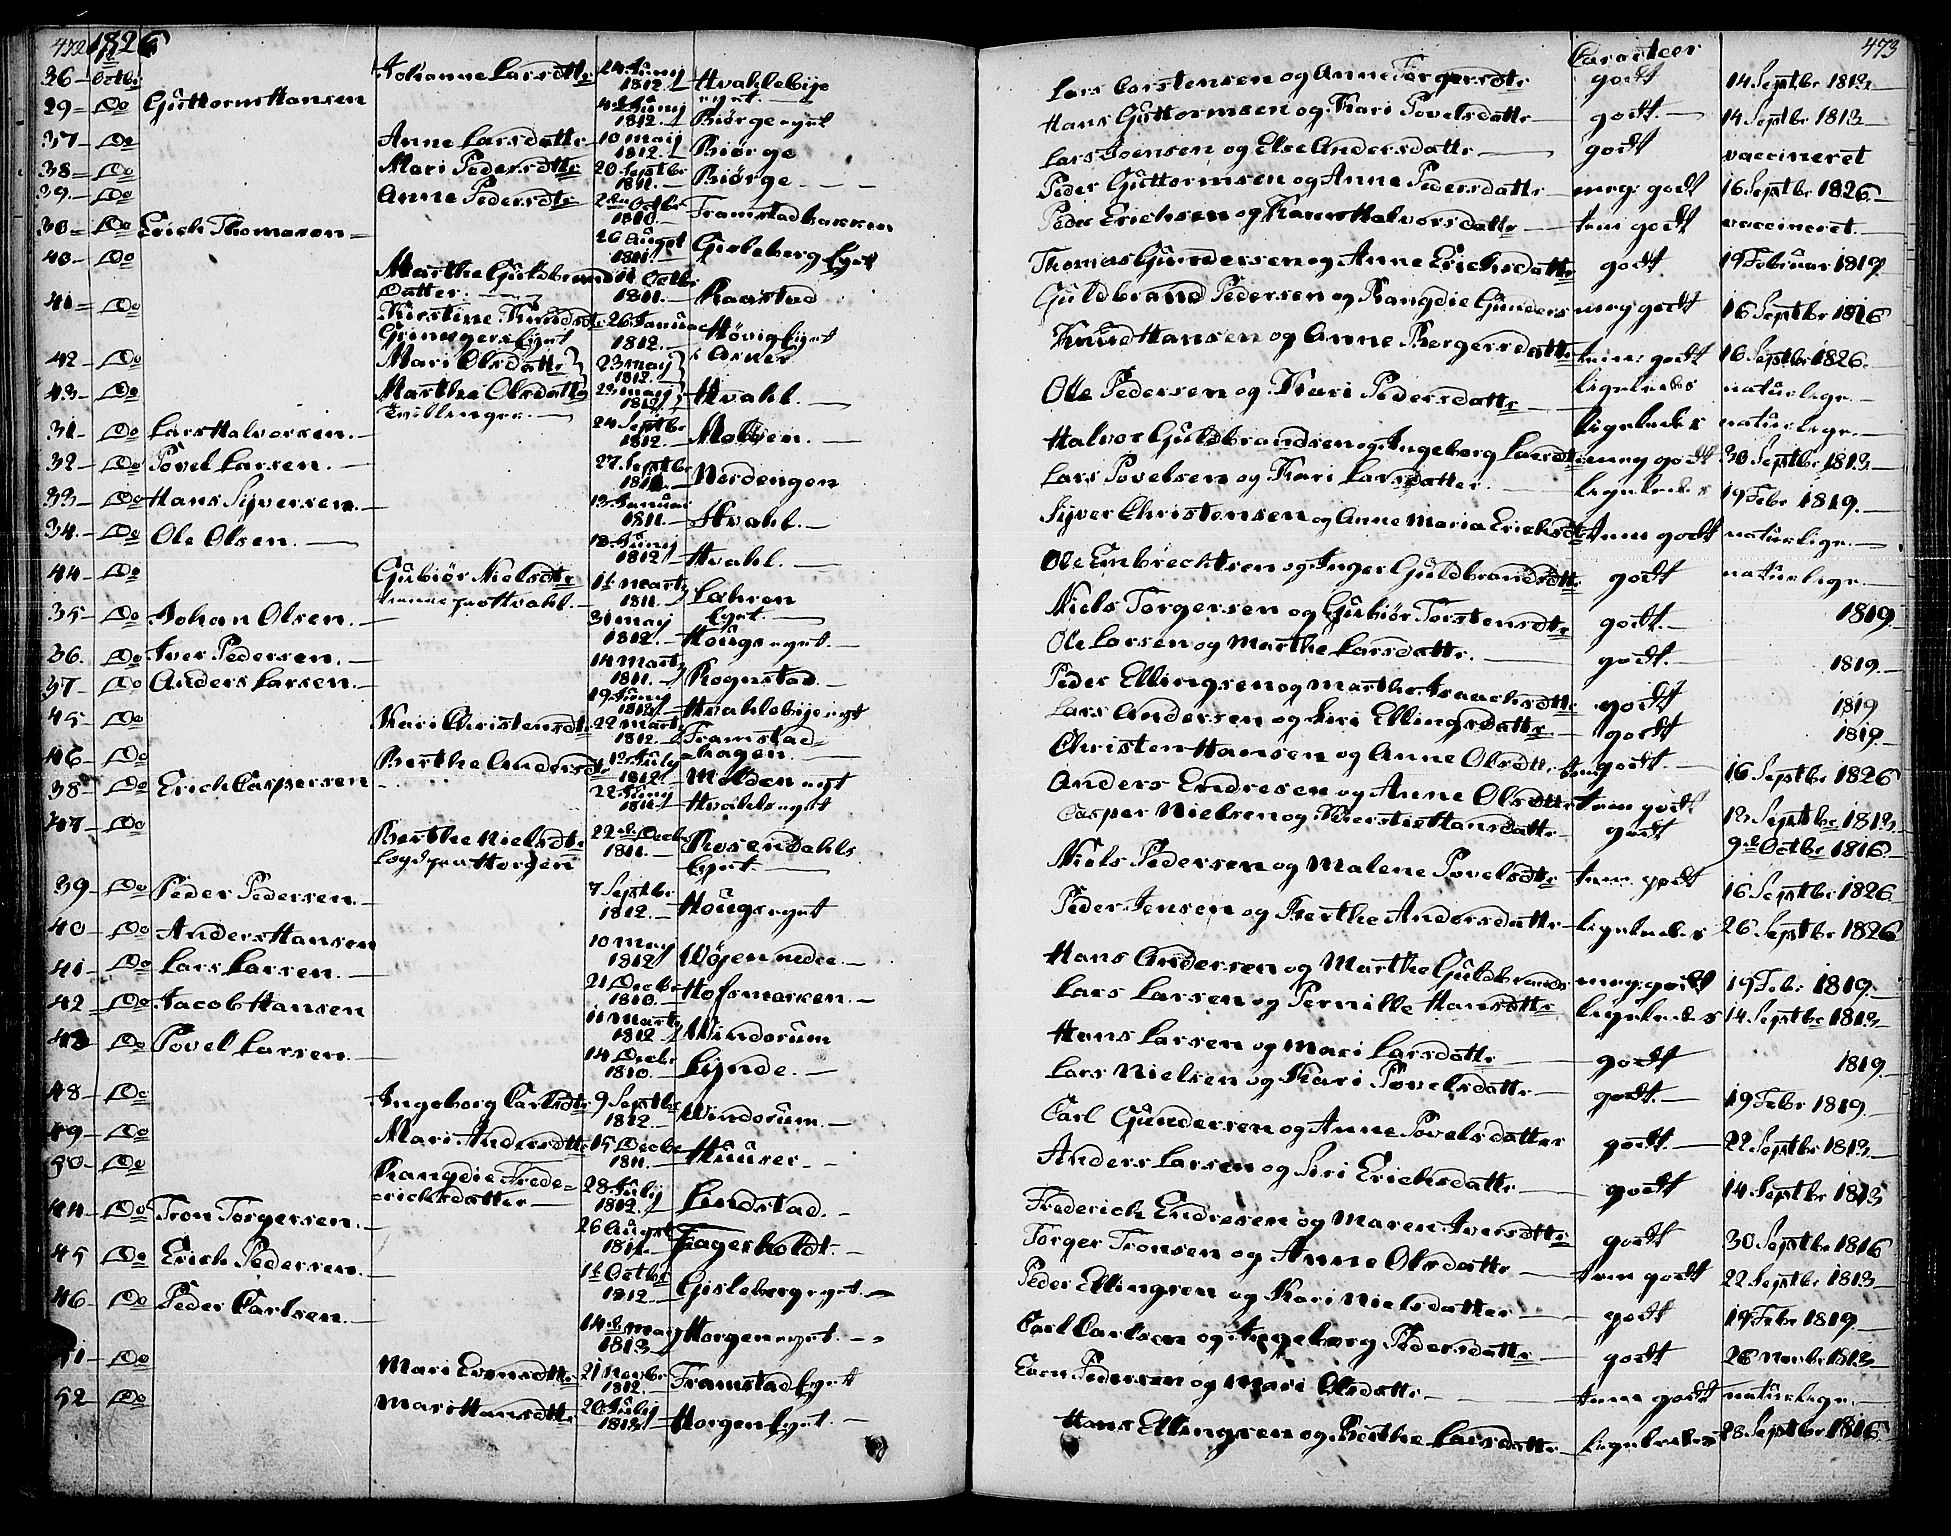 472 1826
36 1t Octbr Johanne Larsdttr 24 Juny 1812 Hvahlebÿe eyet
29 Do Guttorm Hansen 4de Juny 1812 Biörge eyet
37 Do Anne Larsdattr 10 maij 1812 Biörge
38 Do Mari Pedersdttr 20 Septbr 1811 Biörge
39 Do Anne Pedersdtr 2den Octbr 1810 Framstadbakken
30 Do Erich Thomasen 26 August 1811 Gisleberg Eyet
40 Do Marthe Guldbrands Datter 11 Octbr 1811 Raastad
41 Do Kirstine Knudsdtr Grimsgers Eyet 26 Januar 1812 Hövig Eyet i Asker
42 Do Mari Olsdattr 23 maij 1812
43 Do Marthe Olsdattr Tvillinger 23 maij 1812 Hvahl
31 Do Lars Halvorsen 24 Septbr 1812 Moljen
32 Do Povel Larsen 27 Septbr 1812 Nordengen
33 Do Hans Syversen 13 Januar 1811 Hvahl
34 Do Ole Olsen 12 Juny 1812 Hvahl
44 Do Gubiör Nielsdtr 1t marty 1811 Lahren Eyet
35 Do Johan Olsen 31 may 1812 Hougs eyet
36 Do Iver Pedersen 14 Marty 1811 Rognstad
37 Do Anders Larsen 19 Juny 1812 Hvahlebye eyet
45 Do Kari Christensdtr 22 marty 1812 Framstadhagen
46 Do Berthe Andersdtr 12 July 1812 Molden eyt
38 Do Erich Caspersen 22 Juny 1811 Hvahls eyet
47 Do Berthe Nielsdtr Logd fra Horgen 22de Decbr 1811 Rosendahls Eyet
39 Do Peder Pedersen 7 Septbr 1812 Hougs eyet
40 Do Anders Hansen 10 may 1812 Wöyen nedre
41 Do Lars Larsen 21 Decbr 1810 Hofsmarken
42 Do Jacob Hansen 11 marty 1812 Windorum
43 Do Povel Larsen 14 Decbr 1810 Lynde
48 Do Ingeborg Carlsdtr 9 Septbr 1812 Windorum
49 Do Mari Andersdttr 15 Decbr 1811 Huuser
50 Do Rangdie Frederichsdatter 28 July 1812 Lindstad
44 Do Tron Torgersen 26 August 1811 Fagerholdt
45 Do Erich Pedersen 1t Octbr 1812 Gisleberg eyet
46 Do Peder Carlsen 14de may 1813 Horgen eyet
51 Do Mari Evensdttr 21 Novbr 1812 Framstad Eyet
52 Do Mari Hansdttr 20 July 1812 Horgen Eyet
Caracteer 473
Lars Carstensen og Anne Torgersdtr godt 14 Septbr 1813
Hans Guttormsen og Kari Povelsdattr godt 14 Septbr 1813
Lars Joensen og Else Andersdattr godt vaccineret
Peder Guttormsen og Anne Pedersdattr meget godt 16 Septbr 1826
Peder Erichsen og Karn Halvorsdattr tem godt vaccineret
Thomas Gundersen og Anne Erichsdattr godt 19 Februar 1819
Guldbrand Pedersen og Rangdie Gunders meg godt 16 Septbr 1816
Knud Hansen og Anne Bergersdattr tem godt 16 Septbr 1826
Ole Pedersen og Kari Pedersdattr ligeledes naturlige
ligeledes naturlige
Halvor Guldbrandsen og Ingeborg Larsdtr meg godt 30 Septbr 1813
Lars Povelsen og Kari Larsdatter ligeledes 19 Febr 1819
Syver Christensen og Anne Maria Erichsdtr tem godt naturlige
Ole Embrechtsen og Inger Guldbrandsdtr godt naturlige
Niels Torgersen og Gubiör Torstensdtr godt 1819
Ole Larsen og Marthe Larsdattr godt 1819
Peder Ellingsen og Marthe Isaachsdtr godt 1819
Lars Andersen og Siri Ellingsdattr godt 1819
Christen Hansen og Anne Olsdttr tem godt 16 Septbr 1826
Anders Endresen og Anne Olsdttr tem godt 13 Septbr 1813
Casper Nielsen og Kierstie Hansdattr godt 9de Octbr 1816
Niels Pedersen og Malene Povelsdtr tem godt 16 Septbr 1826
Peder Jensen og Berthe Andersdattr ligeledes 26 Septbr 1826
Hans Andersen og Marthe Guldbrands meg godt 19 Febr 1819
Lars Larsen og Pernille Hansdttr ligeledes 14 Septbr 1813
Hans Larsen og Mari Larsdattr godt 1819
Lars Nielsen og Kari Povelsdattr godt 19 Febr 1819
Carl Gundersen og Anne Povelsdatter godt 22 Septbr 1813
Anders Larsen og Siri Erichsdattr godt 14 Septbr 1813
Frederich Endresen og Maren Iversdttr godt 30 Septbr 1816
Torger Tronsen og Anne Olsdattr tem godt 22 Septbr 1813
Peder Ellingsen og Kari Nielsdatter godt 19 Febr 1819
Carl Carlsen og Ingeborg Pedersdattr godt 26 Novbr 1813
Even Pedersen og Mari Olsdattr tem godt naturlige
Hans Ellingsen og Berthe Larsdattr ligeledes 28 Septbr 1816